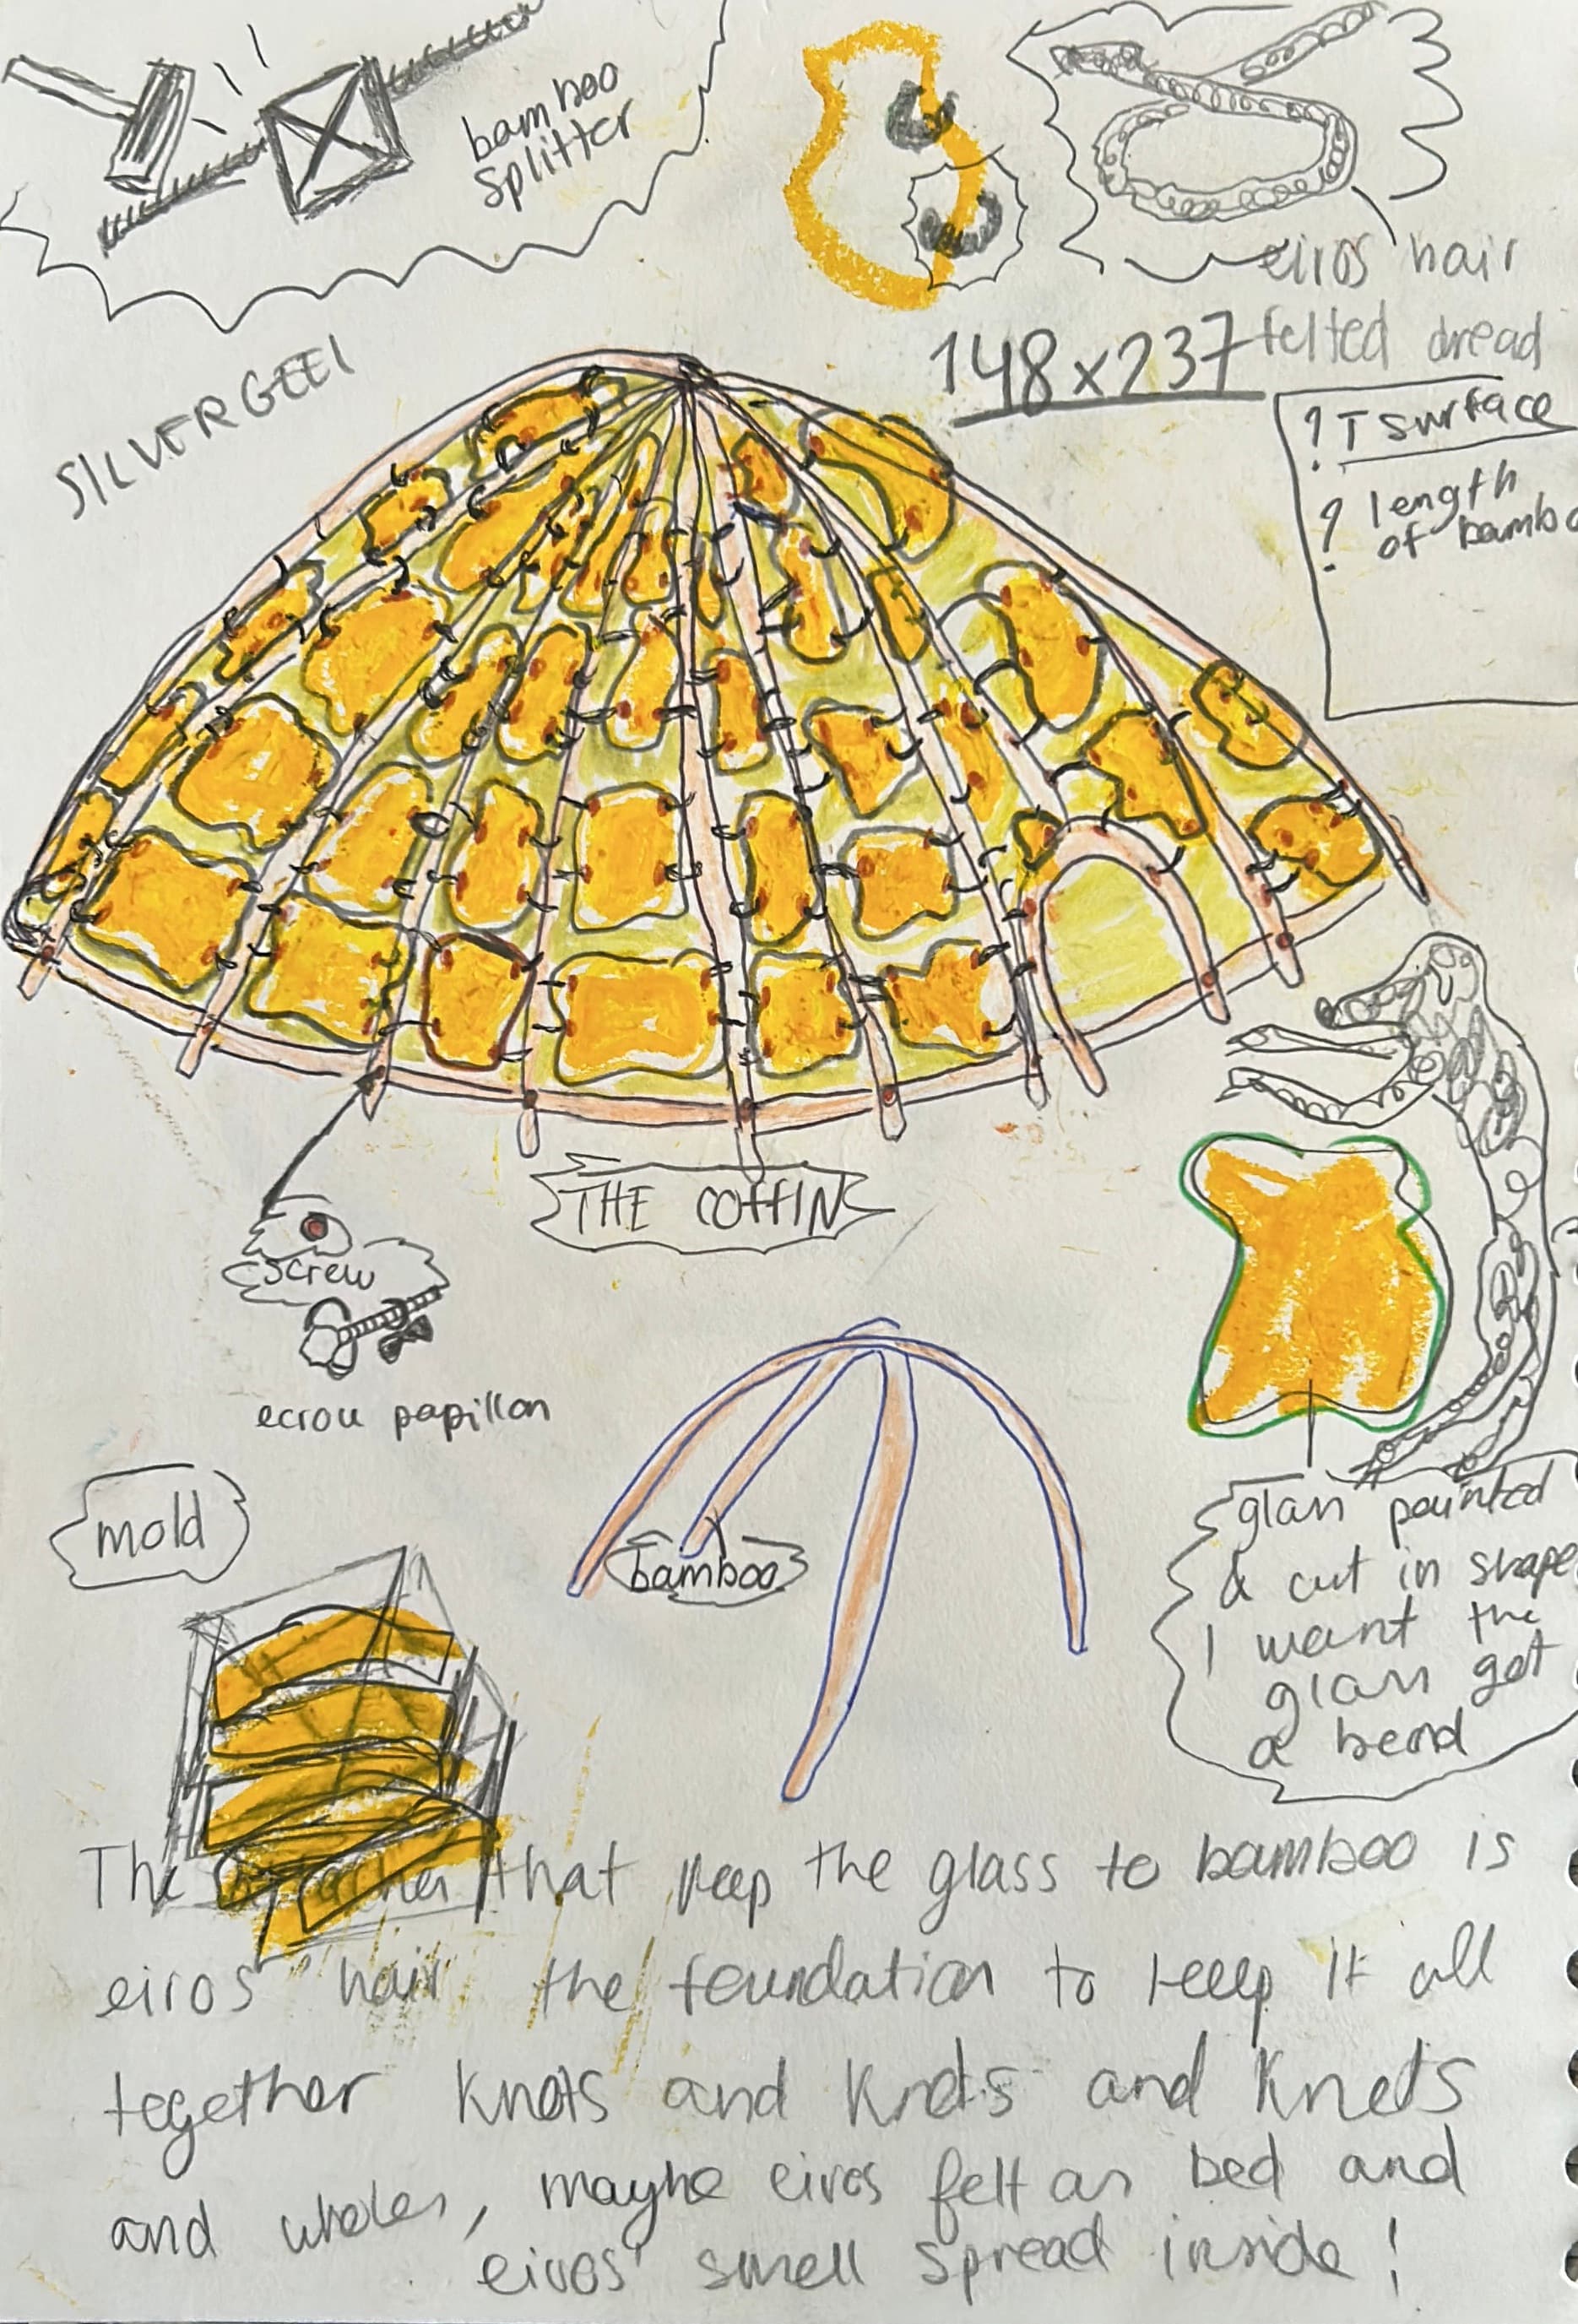 bamboo
splitter
eiros hair
felted dread
148x237
SILVERGEEL
? T surface
? length
of bambo
THE COFFIN
screw
ecrou papillon
mold
bamboo
glass painted
& cut in shape
I want the
glass get
a bend
The that keep the glass to bamboo is
eiros' hair the foundation to keep it all
together knots and knots and knots
and wholes, maybe eiros felt as bed and
eiros' smell spread inside!